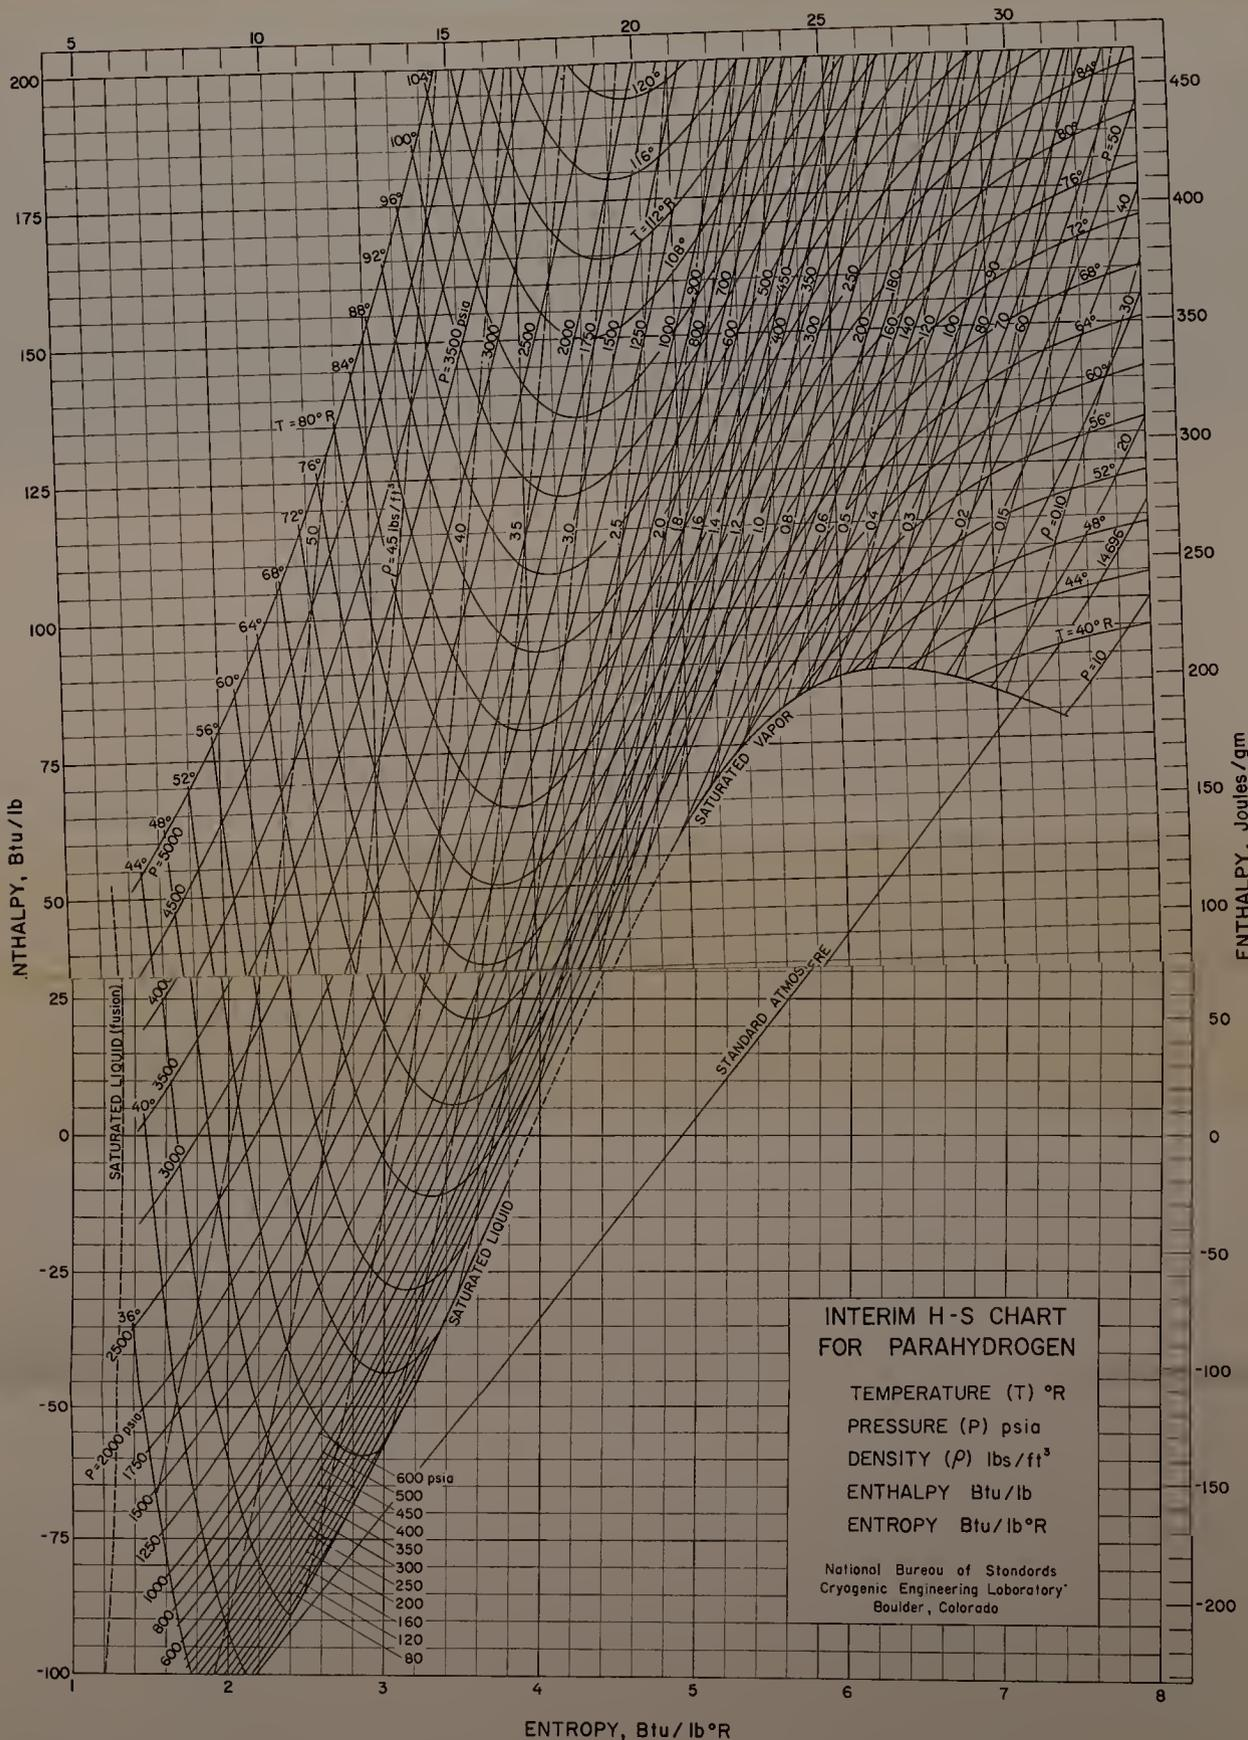 5 10 15 20 25 30
200
175
150
125
100
75
50
25
0
-25
-50
-75
-100
.NTHALPY, Btu/lb
450
400
350
300
250
200
150
100
50
0
-50
-100
-150
-200
ENTHALPY, Joules/gm
104°
100°
96°
92°
88°
84°
T = 80° R
76°
72°
68°
64°
60°
56°
52°
48°
44°
40°
36°
120°
116°
T = 112°R
108°
84°
80°
76°
72°
68°
64°
60°
56°
52°
48°
44°
T = 40° R
P = 50
40
30
20
14.696
P = 10
900 700 500 450 350 250 180 90
P = 3500 psia 3000 2500 2000 1750 1500 1250 1000 800 600 400 300 200 160 140 120 100 80 70 60
5.0 ρ = 4.5 lbs/ft³ 4.0 3.5 3.0 2.5 2.0 1.8 1.6 1.4 1.2 1.0 0.8 0.6 0.5 0.4 0.3 0.2 0.15 ρ = 0.10
SATURATED VAPOR
P = 5000
4500
400
3500
3000
2500
P = 2000 psia
1750
1500
1250
1000
800
600
SATURATED LIQUID (fusion)
STANDARD ATMOS
SATURATED LIQUID
600 psia
500
450
400
350
300
250
200
160
120
80
INTERIM H-S CHART
FOR PARAHYDROGEN
TEMPERATURE (T) °R
PRESSURE (P) psia
DENSITY (ρ) lbs/ft³
ENTHALPY Btu/lb
ENTROPY Btu/lb°R
National Bureau of Standards
Cryogenic Engineering Laboratory
Boulder, Colorado
1 2 3 4 5 6 7 8
ENTROPY, Btu/lb°R